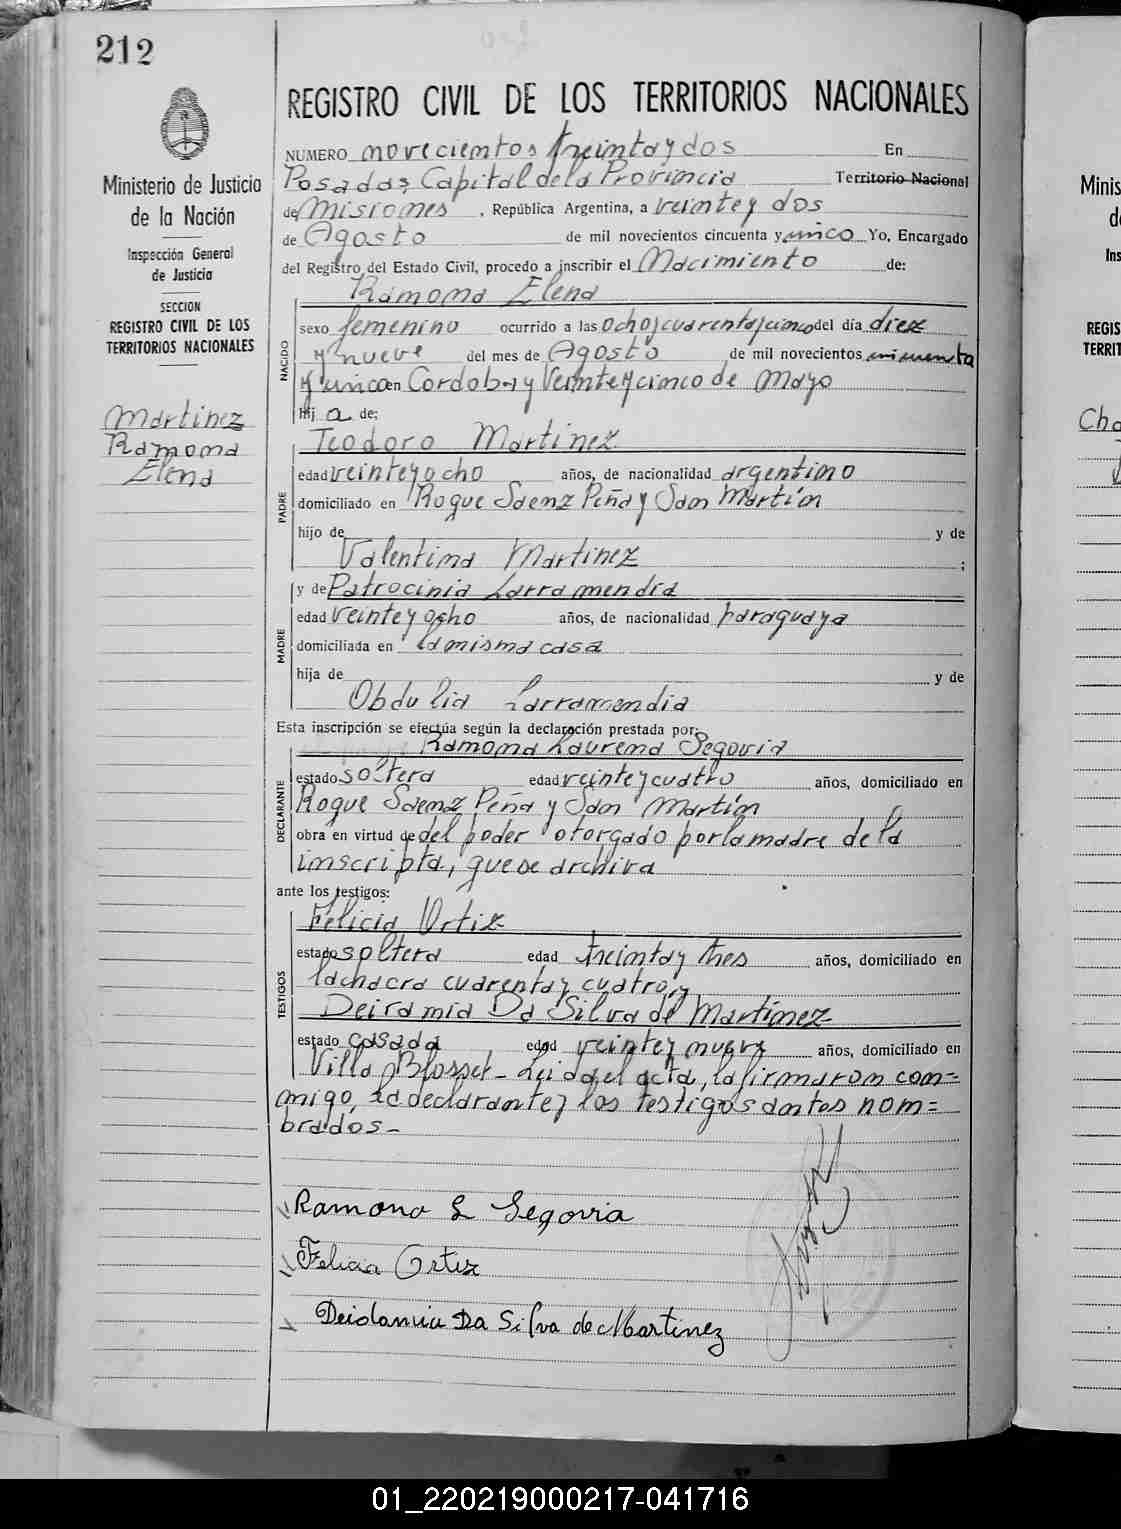 212
Ministerio de Justicia
de la Nación
Inspección General
de Justicia
SECCION
REGISTRO CIVIL DE LOS
TERRITORIOS NACIONALES
Martinez
Ramona
Elena
REGISTRO CIVIL DE LOS TERRITORIOS NACIONALES
NUMERO novecientos treinta y dos En
Posadas, Capital de la Provincia Territorio Nacional
de Misiones, República Argentina, a veinte y dos
de Agosto de mil novecientos cincuenta y unico Yo, Encargado
del Registro del Estado Civil, procedo a inscribir el Nacimiento de:
Ramona Elena
NACIDO
sexo femenino ocurrido a las ocho y cuarenta y cinco del día diez
y nueve del mes de Agosto de mil novecientos
y unico en Cordoba y Veinte y cinco de Mayo
hij a de:
Teodoro Martinez
PADRE
edad veinte y ocho años, de nacionalidad argentino
domiciliado en Roque Saenz Peña y San Martín
hijo de y de
Valentina Martinez ;
y de Patrocinia Larramendia
MADRE
edad veinte y ocho años, de nacionalidad paraguaya
domiciliada en la misma casa
hija de y de
Obdulia Larramendia
Esta inscripción se efectúa según la declaración prestada por:
Ramona Laurena Segovia
DECLARANTE
estado soltera edad veinte y cuatro años, domiciliado en
Roque Saenz Peña y San Martín
obra en virtud de del poder otorgado por la madre de la
inscripta, que se archiva
ante los testigos:
Felicia Ortiz
TESTIGOS
estado soltera edad treinta y tres años, domiciliado en
la chacra cuarenta y cuatro, y
Deidamia Da Silva de Martinez
estado casada edad veinte y nueve años, domiciliado en
Villa Blosset - Leida el acta, la firmaron con=
migo, la declarante y los testigos antes nom=
brados -
Ramona L Segovia
Felicia Ortiz
Deidamia Da Silva de Martinez
Minis
d
Ins
REGIS
TERRIT
Cha
01_220219000217-041716